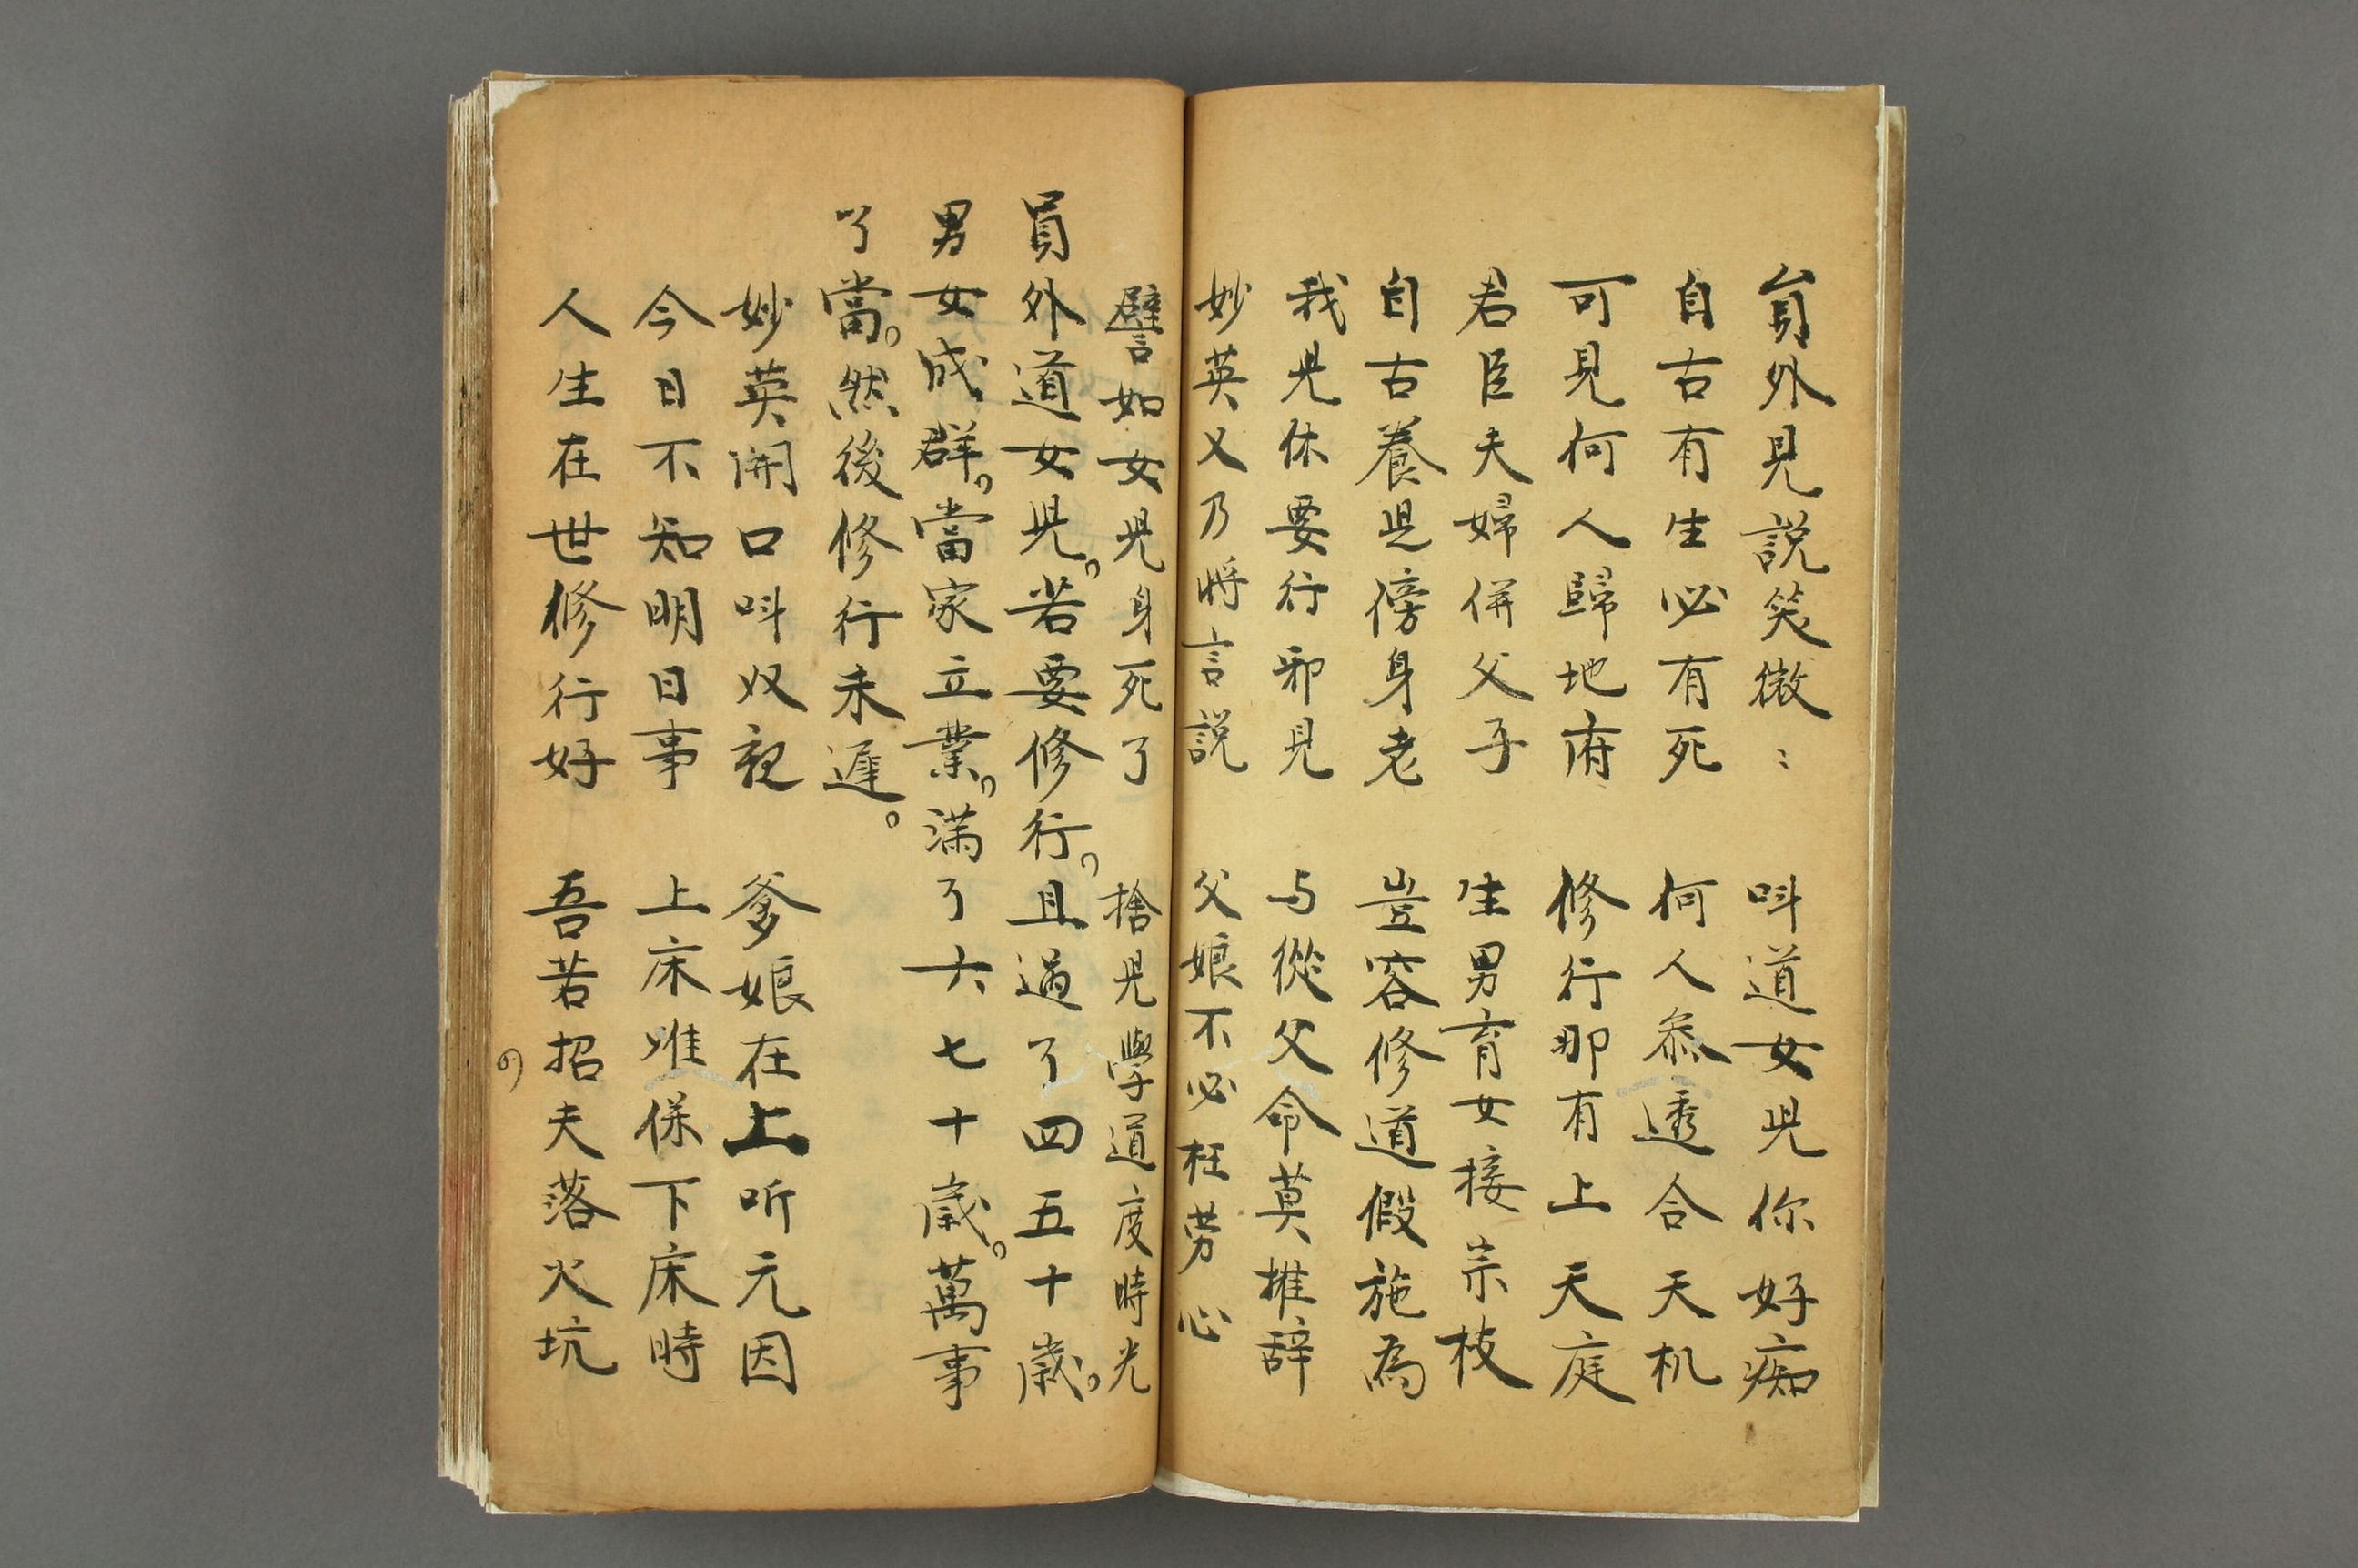 員外見説笑微〻 叫道女児你好痴
自古有生必有死 何人叅透合天机
可見何人歸地府 修行那有上天庭
君臣夫婦併父子 生男育女接宗枝
自古養児傍身老 豈容修道假施為
我児休要行邪見 与從父命莫推辞
妙英又乃將言説 父娘不必枉劳心
譬如女児身死了 捨児學道度時光
員外道女児。若要修行。且過了四五十歲。
男女成群。當家立業。满了六七十歲。萬事
了當。然後修行未遲。
妙英開口叫奴親 爹娘在上听元因
今日不知明日事 上床难保下床時
人生在世修行好 吾若招夫落火坑